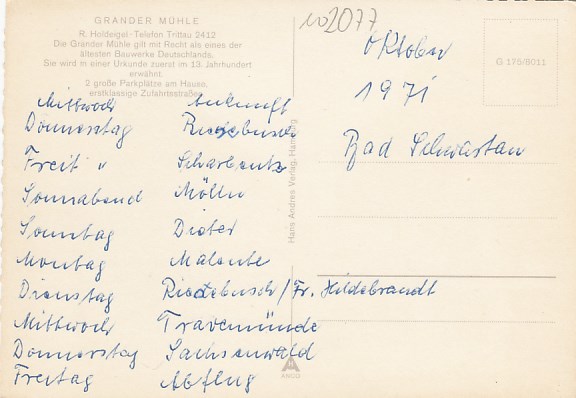 GRANDER MÜHLE
R. Holdeigel · Telefon Trittau 2412
Die Grander Mühle gilt mit Recht als eines der
ältesten Bauwerke Deutschlands.
Sie wird in einer Urkunde zuerst im 13. Jahrhundert
erwähnt
2 große Parkplätze am Hause,
erstklassige Zufahrtsstraßen
Mittwoch Ankunft
Donnerstag
Freit " Scharbeutz
Sonnabend Mölln
Sonntag Dieter
Montag Malente
Dienstag Riedebusch / Fr. Hildebrandt
Mittwoch Travemünde
Donnerstag Sachsenwald
Freitag Abflug
Hans Andres Verlag, Hamburg
ANCO
2077
G 175/8011
Oktober
1971
Bad Schwartau